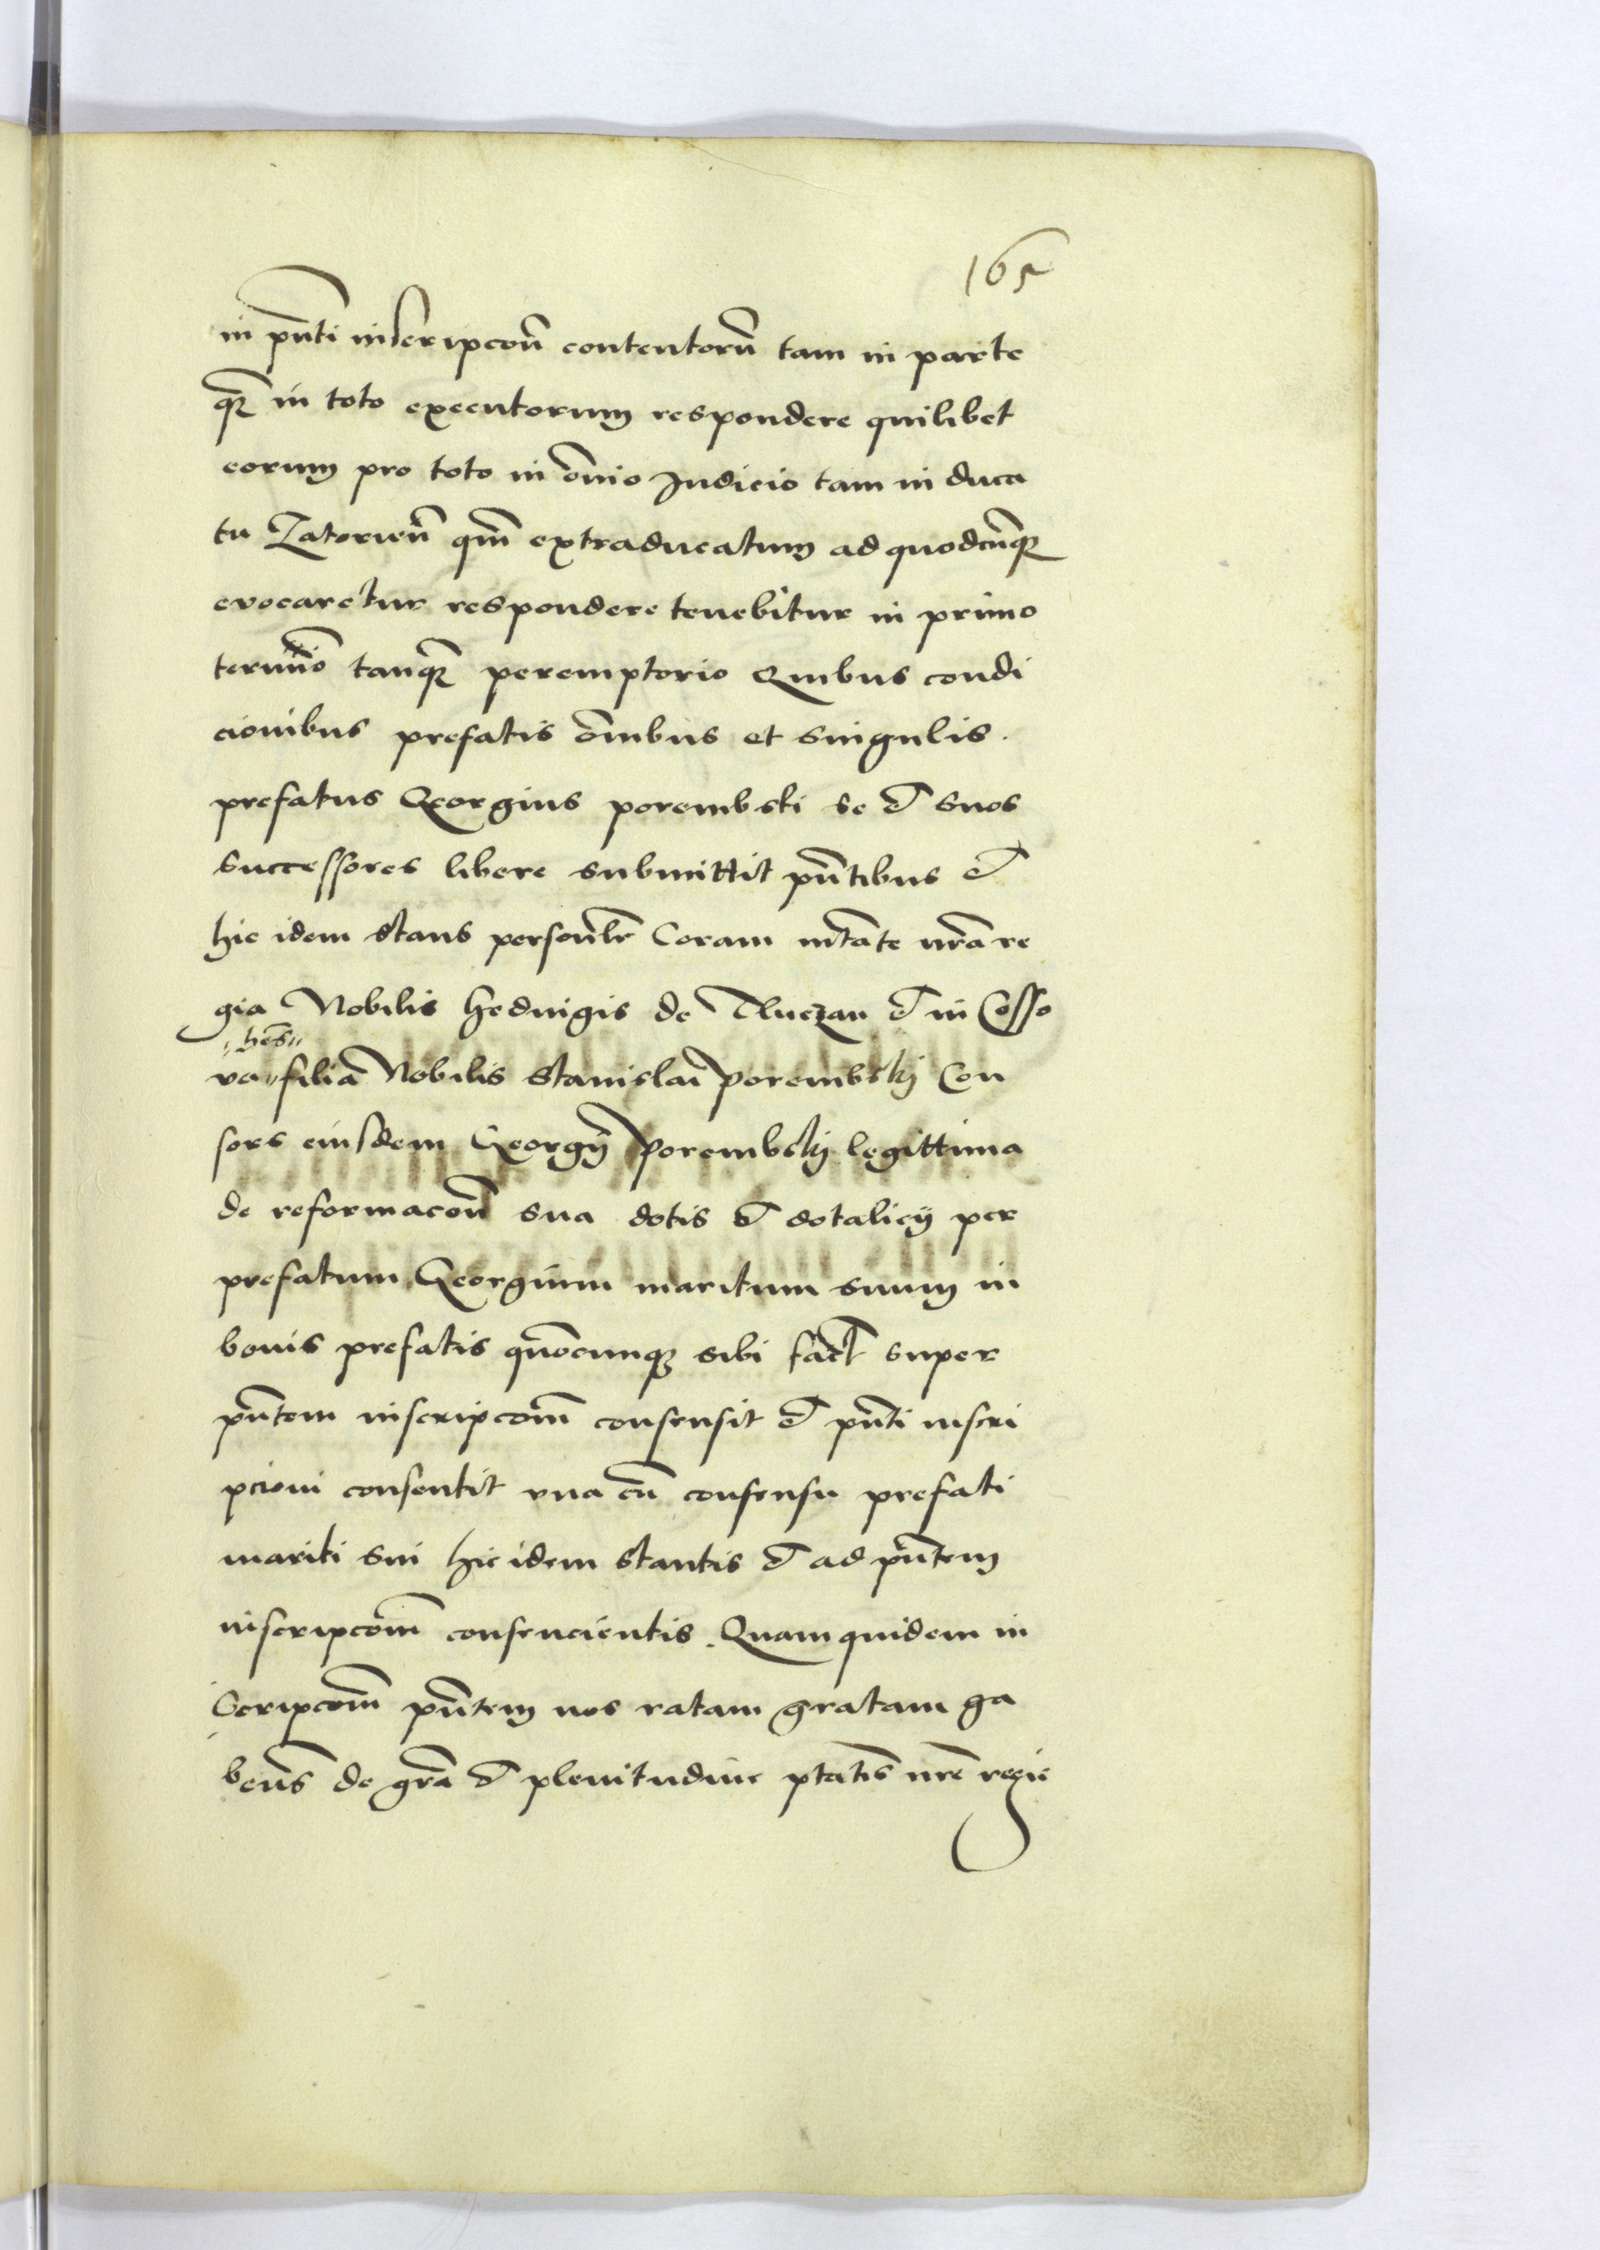 165
in pñti inscripcoñ contentorũ tam in parte
qꝫ in toto executorum respondere quilibet
eorum pro toto in om̃io Judicio tam in duca
tu Zatorieñ qm̃ extraducatum ad quodcũqꝫ
evocaretur respondere tenebitur in primo
termĩo tanqꝫ peremptorio Quibus condi
cionibus prefatis om̃ibus et singulis.
prefatus Georgius porembski se et suos
successores libere submittit pñtibus et
hic idem stans persoñlr Coram mtãte nrã re
gia Nobilis Hedvigis de Tluczan et in Cosso
"hẽs"
va "filia Nobilis Stanislai Porembskij Con
sors eiusdem Georgij Porembskij legittima
de reformacoñ sua dotis et dotalicij per
prefatum Georgium maritum suum in
bonis prefatis quõcunqꝫ sibi fact super
pñtem inscripcom̃ consensit et pñti inscri
pcioni consentit una cũ consensu prefati
mariti sui hic idem stantis et ad pñtem
inscripcõm consencientis. Quam quidem in
scripcom̃ pñtem nos ratam gratam ha
beñs de grã et plenitudine ptãtis nrẽ regie